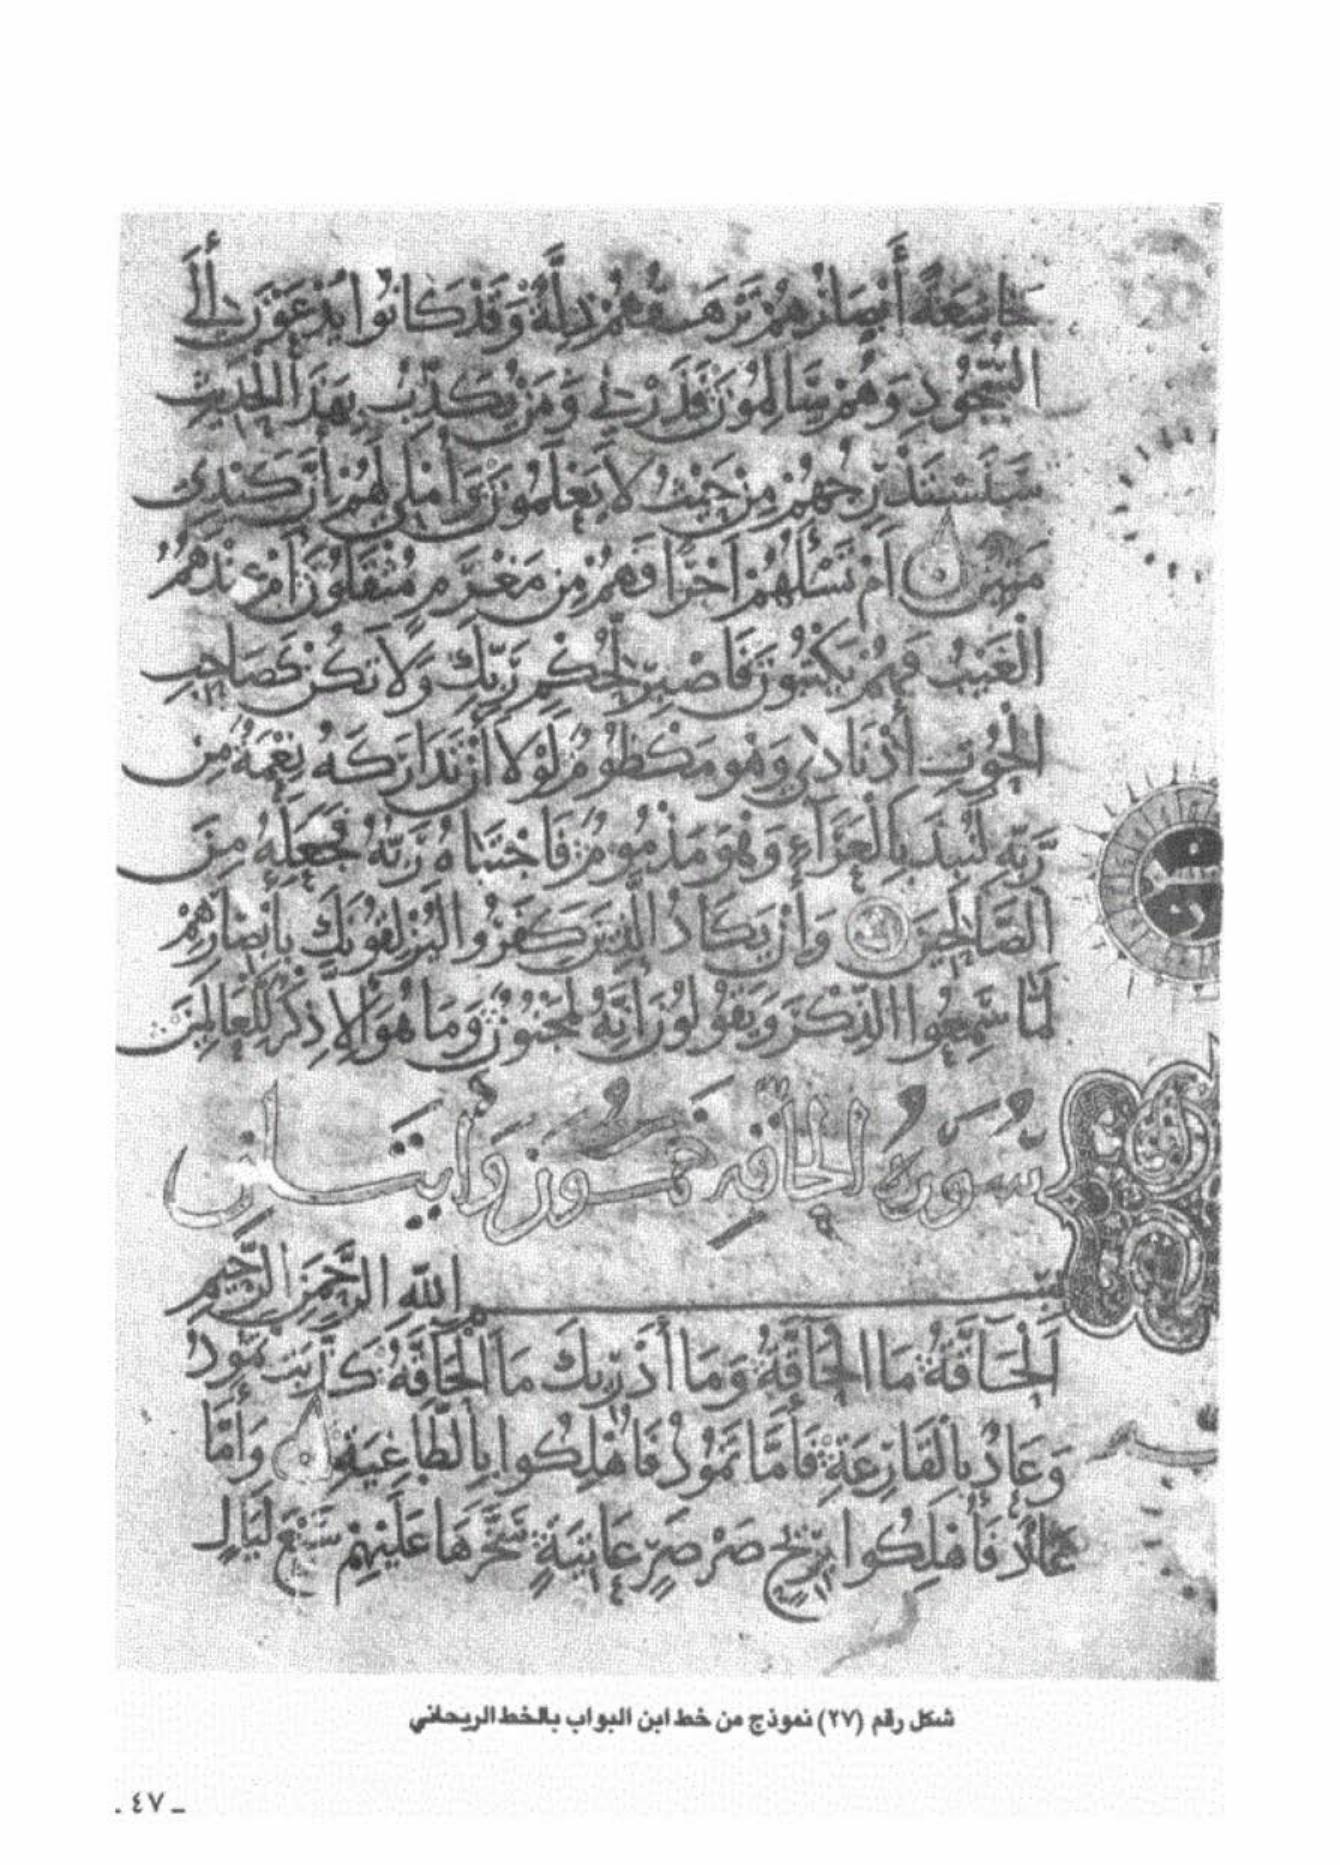 خَاشِعَةً أَبْصَارُهُمْ تَرْهَقُهُمْ ذِلَّةٌ وَقَدْ كَانُوا يُدْعَوْنَ إِلَى
السُّجُودِ وَهُمْ سَالِمُونَ فَذَرْنِي وَمَنْ يُكَذِّبُ بِهَذَا الْحَدِيثِ
سَنَسْتَدْرِجُهُمْ مِنْ حَيْثُ لَا يَعْلَمُونَ وَأُمْلِي لَهُمْ إِنَّ كَيْدِي
مَتِينٌ أَمْ تَسْئَلُهُمْ أَجْرًا فَهُمْ مِنْ مَغْرَمٍ مُثْقَلُونَ أَمْ عِنْدَهُمُ
الْغَيْبُ فَهُمْ يَكْتُبُونَ فَاصْبِرْ لِحُكْمِ رَبِّكَ وَلَا تَكُنْ كَصَاحِبِ
الْحُوتِ إِذْ نَادَى وَهُوَ مَكْظُومٌ لَوْلَا أَنْ تَدَارَكَهُ نِعْمَةٌ مِنْ
رَبِّهِ لَنُبِذَ بِالْعَرَاءِ وَهُوَ مَذْمُومٌ فَاجْتَبَاهُ رَبُّهُ فَجَعَلَهُ مِنَ
الصَّالِحِينَ وَإِنْ يَكَادُ الَّذِينَ كَفَرُوا لَيُزْلِقُونَكَ بِأَبْصَارِهِمْ
لَمَّا سَمِعُوا الذِّكْرَ وَيَقُولُونَ إِنَّهُ لَمَجْنُونٌ وَمَا هُوَ إِلَّا ذِكْرٌ لِلْعَالَمِينَ
سُورَةُ الْحَاقَّةِ خَمْسُونَ وَأَيَتَانِ
بِسْمِ اللَّهِ الرَّحْمَنِ الرَّحِيمِ
الْحَاقَّةُ مَا الْحَاقَّةُ وَمَا أَدْرَيكَ مَا الْحَاقَّةُ كَذَّبَتْ ثَمُودُ
وَعَادٌ بِالْقَارِعَةِ فَأَمَّا ثَمُودُ فَأُهْلِكُوا بِالطَّاغِيَةِ وَأَمَّا
عَادٌ فَأُهْلِكُوا بِرِيحٍ صَرْصَرٍ عَاتِيَةٍ سَخَّرَهَا عَلَيْهِمْ سَبْعَ لَيَالٍ
شكل رقم (٢٧) نموذج من خط ابن البواب بالخط الريحاني
ـ ٤٧ ـ